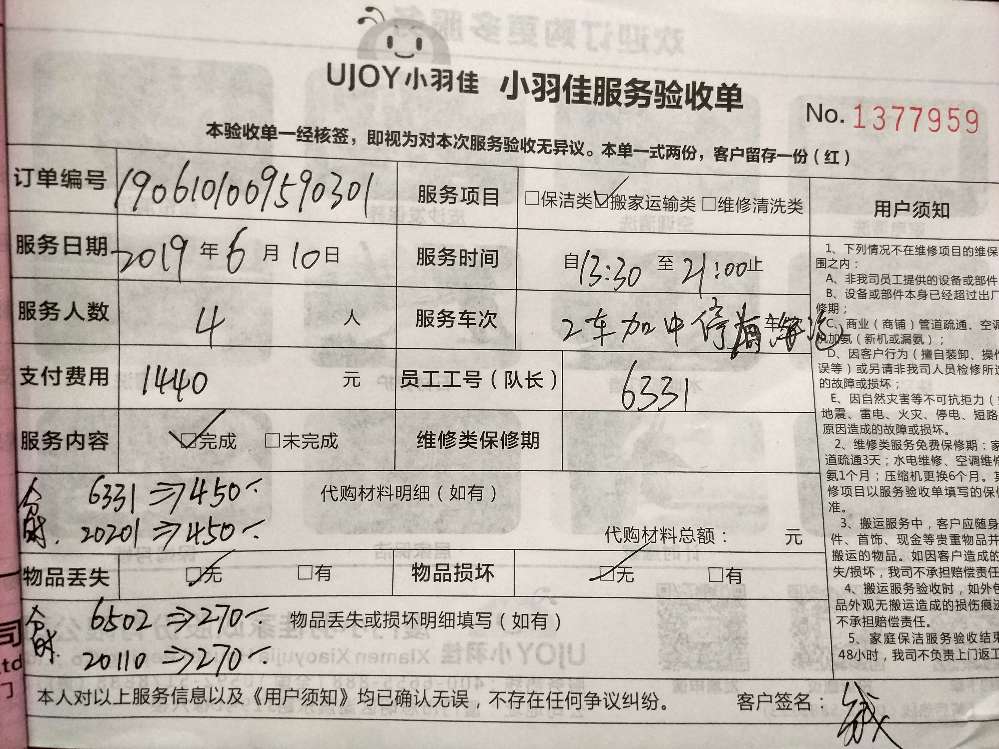 UJOY小羽佳 小羽佳服务验收单
No. 1377959
本验收单一经核签，即视为对本次服务验收无异议。本单一式两份，客户留存一份（红）
订单编号 1906101009590301 服务项目 □保洁类☑搬家运输类□维修清洗类
服务日期 2019年6月10日 服务时间 自13:30至21:00止
服务人数 4人 服务车次 2车加中停
支付费用 1440元 员工工号（队长） 6331
服务内容 ☑完成 □未完成 维修类保修期
6331⇒450 代购材料明细（如有）
20201⇒450 代购材料总额： 元
物品丢失 ☑无 □有 物品损坏 ☑无 □有
6502⇒270 物品丢失或损坏明细填写（如有）
20110⇒270
本人对以上服务信息以及《用户须知》均已确认无误，不存在任何争议纠纷。 客户签名：
用户须知
1、下列情况不在维修项目的维保
围之内：
A、非我司员工提供的设备或部件
B、设备或部件本身已经超过出厂
修期；
C、商业（商铺）管道疏通、空调
加氨（新机或漏氨）；
D、因客户行为（擅自装卸、操作
误等）或另请非我司人员检修所造
的故障或损坏；
E、因自然灾害等不可抗拒力（
地震、雷电、火灾、停电、短路
原因造成的故障或损坏。
2、维修类服务免费保修期：家
道疏通3天；水电维修、空调维修
氨1个月；压缩机更换6个月。其
修项目以服务验收单填写的保修
准。
3、搬运服务中，客户应随身
件、首饰、现金等贵重物品并
搬运的物品。如因客户造成的
失/损坏，我司不承担赔偿责任
4、搬运服务验收时，如外包
品外观无搬运造成的损伤痕迹
不承担赔偿责任。
5、家庭保洁服务验收结束
48小时，我司不负责上门返工